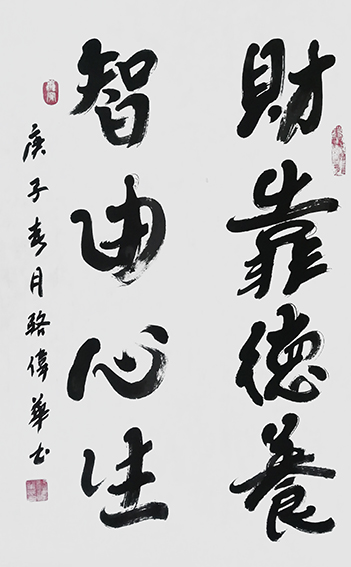 財靠德養
智由心生
庚子春月駱偉華書